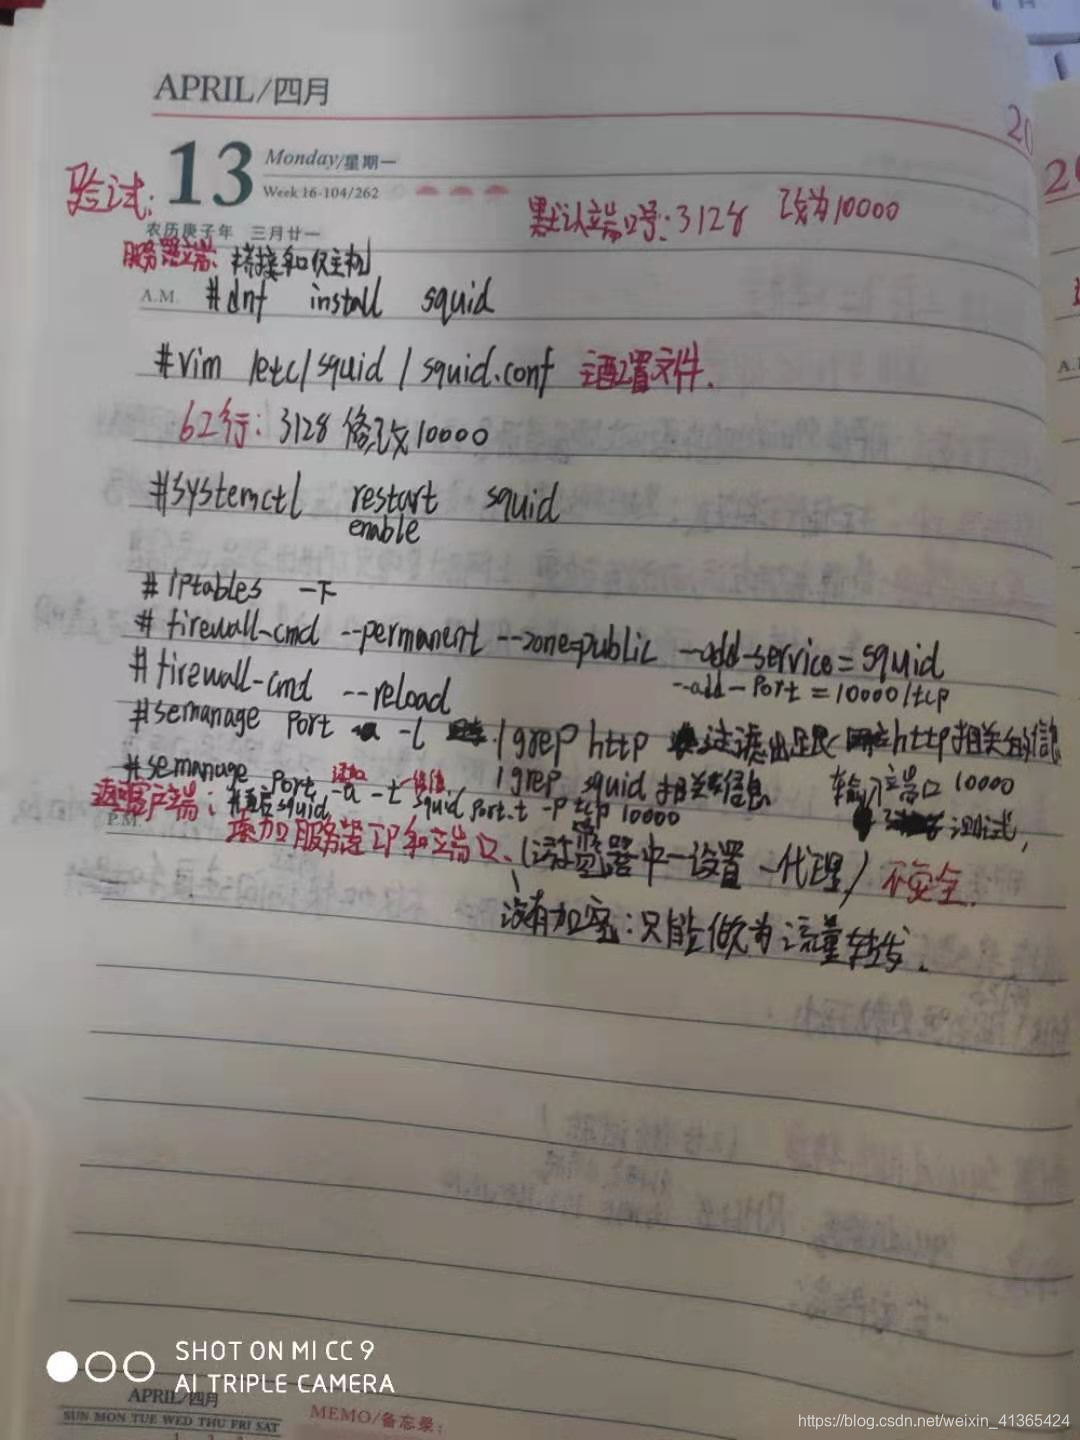 APRIL/四月
20
13 Monday/星期一
Week 16-104/262
验试:
默认端口号:3128 改为10000
农历庚子年 三月廿一
服务器端: 桥接和仅主机
A.M. #dnf install squid
#vim /etc/squid/squid.conf 主配置文件.
62行: 3128修改10000
#systemctl restart squid
enable
#iptables -F
#firewall-cmd --permanent --zone=public --add-service=squid
--add-port=10000/tcp
#firewall-cmd --reload
#semanage port -l |grep http 过滤出跟http相关的信息
|grep squid相关信息
输入端口10000
测试,
#semanage port -a -t squid_port_t -p tcp 10000
添加
客户端:
P.M.
添加服务器IP和端口、(浏览器中-设置-代理) 不安全.
没有加密:只能做为流量转发.
SHOT ON MI CC 9
AI TRIPLE CAMERA
APRIL/四月
SUN MON TUE WED THU FRI SAT
MEMO/备忘录:
https://blog.csdn.net/weixin_41365424